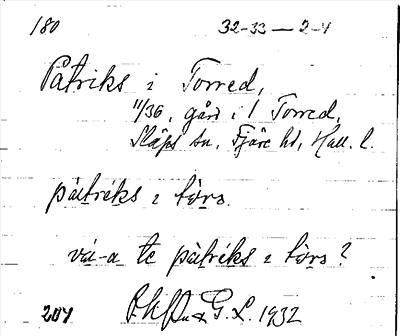 180 32-33 — 2-4
Patriks i Torred,
11/36, gård i 1 Torred,
Släps sn, Fjäre hd, Hall. l.
pàtréks i tòrə.
vá-a te pàtréks i tòrə?
204 G. L. 1932